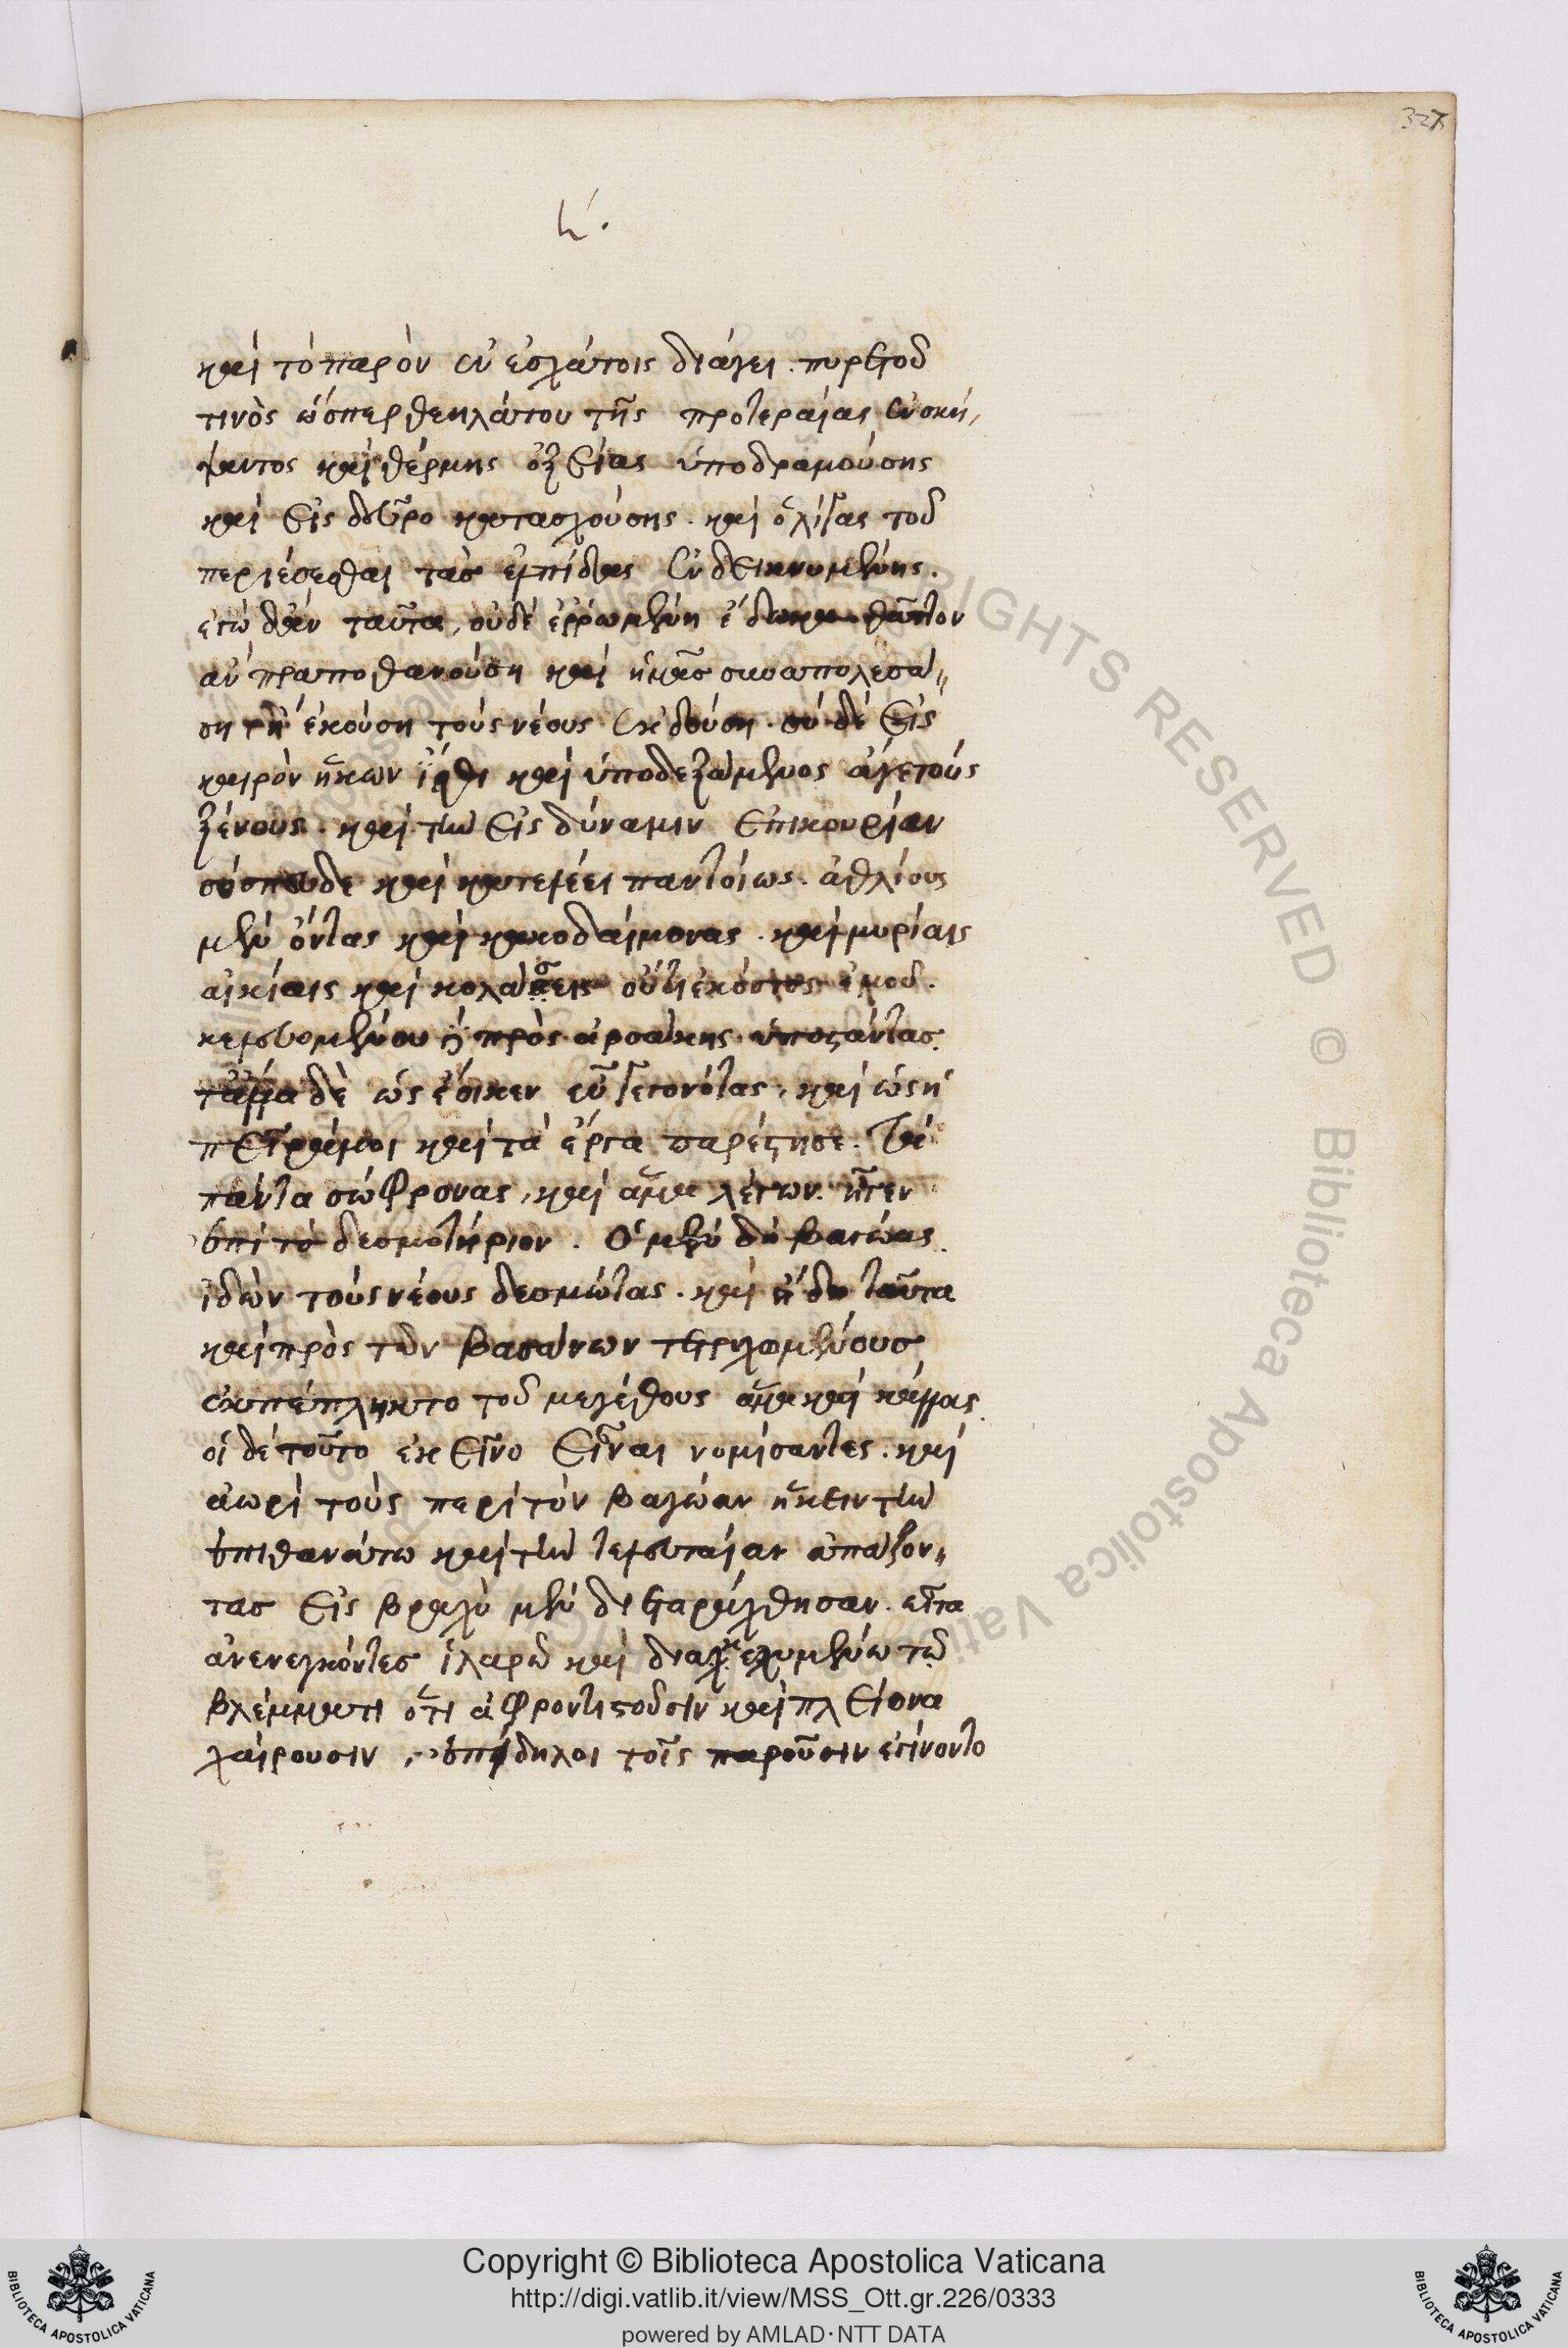 κ΄.
καὶ τὸ παρὸν ἐν ἐσχάτοις διάγει. πυρετοῦ
τινὸς ὥσπερ θεηλάτου τῆς προτεραίας ἐνσκή,
ψαντος καὶ θέρμης ὀξείας ὑποδραμούσης
καὶ εἰς δεῦρο κατασχούσης. καὶ ὀλίγας τοῦ
περιέσεσθαι τὰς ἐλπίδας ἐνδεικνυμένης.
ἐγὼ δ' ἂν ταῦτα, οὐδὲ ἐρρωμένη ἔδωκα θᾶττον
ἂν προαποθανούση καὶ ἡμᾶς συναπολεσά,,
ση ἢ ἑκούση τοὺς νέους ἐκδούση. σὺ δὲ εἰς
καιρὸν ἥκων ἴσθι καὶ ὑποδεξάμενος ἄγε τοὺς
ξένους. καὶ τὴν εἰς δύναμιν ἐπικουρίαν
σύσπευδε καὶ κατελέει παντοίως. ἀθλίους
μὲν ὄντας καὶ κακοδαίμονας. καὶ μυρίαις
αἰκίαις καὶ κολάσεις οὔτι ἑκόντος ἐμοῦ.
κελευομένου δὲ πρὸς ἀρσάκης ὑποστάντας.
τἄλλα δὲ ὡς ἔοικεν εὖ γεγονότας, καὶ ὡς ἡ
πεῖρά μοι καὶ τὰ ἔργα παρέστησε. τὰ
πάντα σώφρονας, καὶ ἅμα λέγων. ἦγεν
ἐπὶ τὸ δεσμοτήριον. Ὁ μὲν δὴ βαγώας
ἰδὼν τοὺς νέους δεσμώτας. καὶ ἤδη ταῦτα
καὶ πρὸς τῶν βασάνων τετρυχωμένους
ἐκπέπληκτο τοῦ μεγέθους ἅμα καὶ κάλλας.
οἱ δὲ τοῦτο ἐκεῖνο εἶναι νομίσαντες. καὶ
ἀωρὶ τοὺς περὶ τὸν βαγώαν ἥκειν τὴν
ἐπιθανάτω καὶ τὴν τελευταίαν ἀπάξον,,
τας εἰς βραχὺ μὲν διεταράχθησαν. εἶτα
ἀνενεγκόντες ἱλαρῶ καὶ διακεχυμένω τῶ
βλέμματι ὅτι ἀφροντιστοῦσιν καὶ πλείονα
χαίρουσιν, ἐπίδηλοι τοῖς παροῦσιν ἐγίνοντο
Copyright © Biblioteca Apostolica Vaticana
http://digi.vatlib.it/view/MSS_Ott.gr.226/0333
powered by AMLAD·NTT DATA